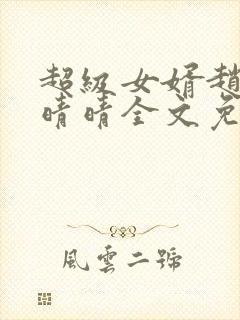 超級女婿趙
晴晴全文免
風雲二號